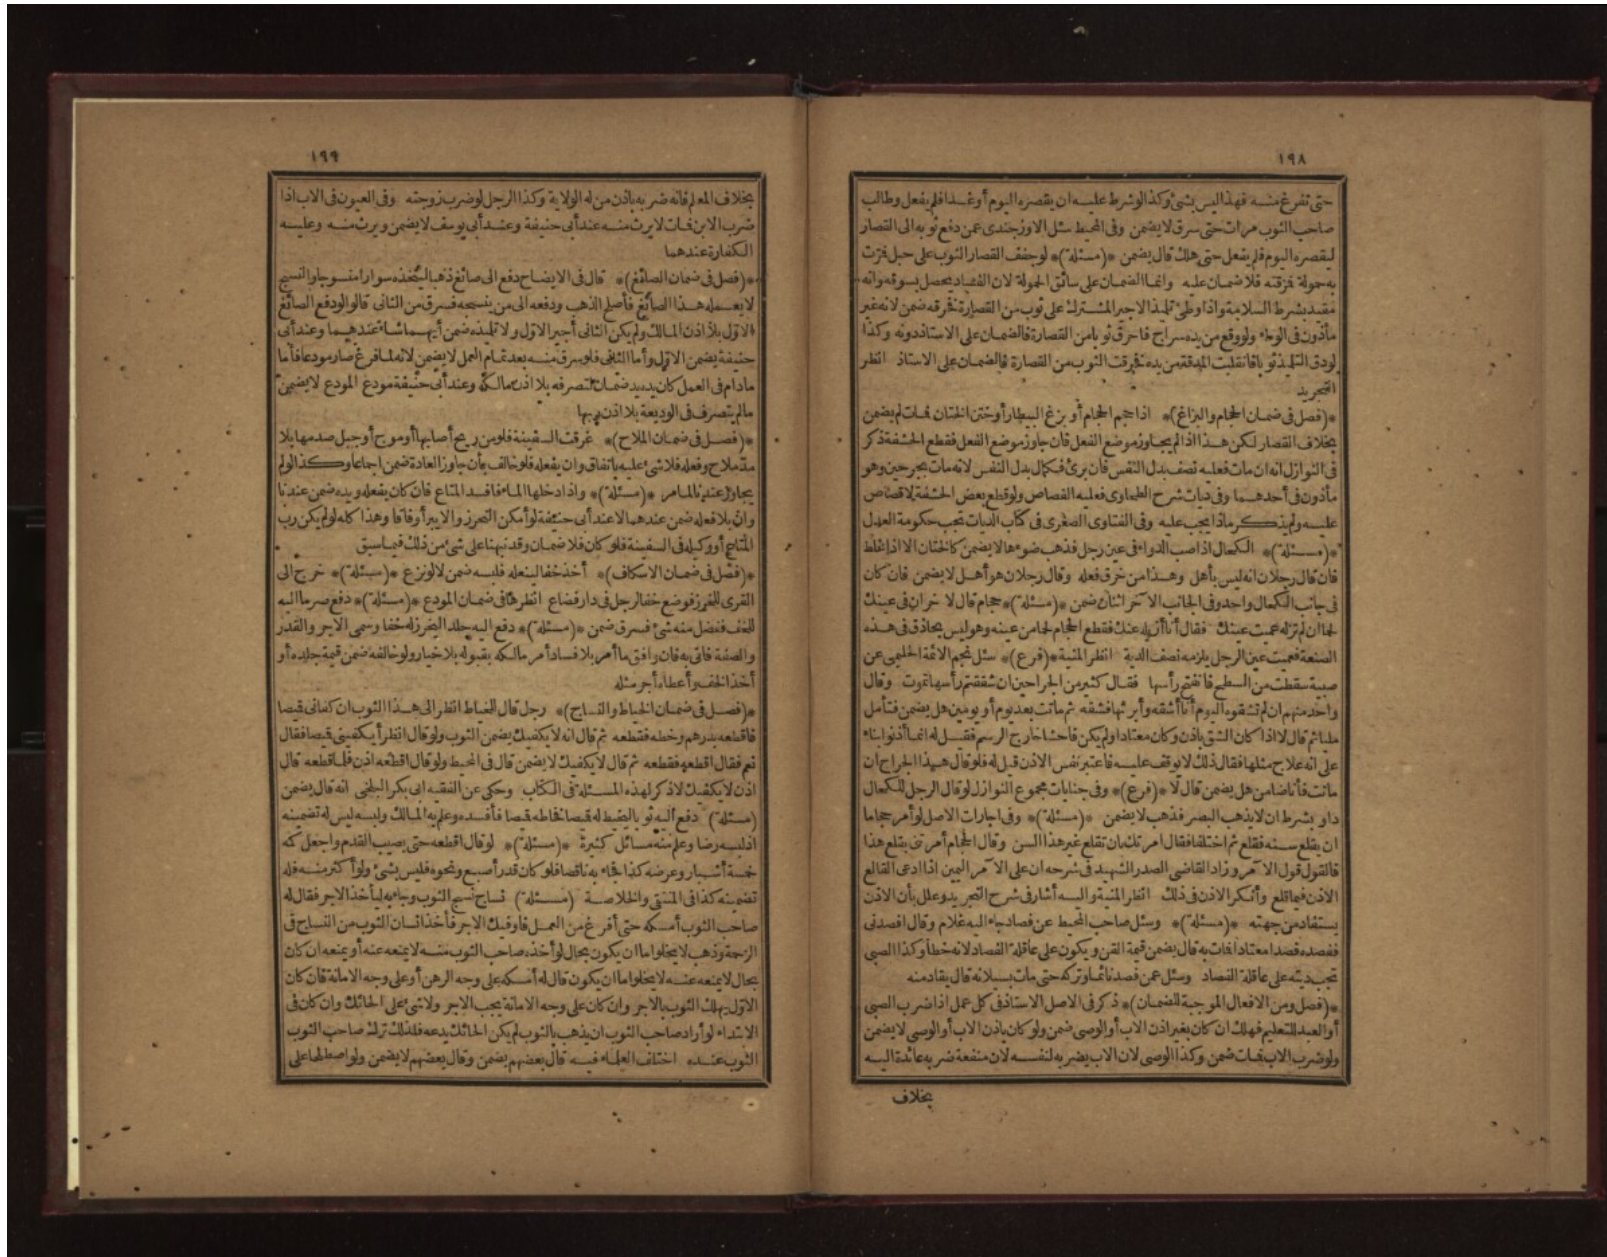 ١٩٨
حتى تفرغ منه فهذا ليس بشئ وكذا لو شرط عليه ان يقصره اليوم أو غدا فلم يفعل وطالب
صاحب الثوب مرات حتى سرق لا يضمن وفى المحيط سئل الاوزجندى عمن دفع ثوبه الى القصار
ليقصره اليوم فلم يفعل حتى هلك قال يضمن *(مسئلة)* لو جفف القصار الثوب على حبل فمرت
به حمولة فمزقته فلا ضمان عليه وانما الضمان على سائق الحمولة لان الفساد يحصل بسوقه وانه
مقيد بشرط السلامة واذا وطئ تلميذ الاجير المشترك على ثوب من القصارة فخرقه ضمن لانه غير
مأذون فى الوطء ولو وقع من يده سراج فاحرق ثوبا من القصارة فالضمان على الاستاذ دونه وكذا
لو دق التلميذ ثوبا فانفلتت المدقة من يده فخرقت الثوب من القصارة فالضمان على الاستاذ انظر
التجريد
*(فصل فى ضمان الحجام والبزاغ)* اذا حجم الحجام أو بزغ البيطار أو ختن الختان فمات لم يضمن
بخلاف القصار لكن هذا اذا لم يجاوز موضع الفعل فان جاوز موضع الفعل فقطع الحشفة ذكر
فى النوازل انه ان مات فعليه نصف بدل النفس فان برئ فكمال بدل النفس لانه مات بجرحين وهو
مأذون فى أحدهما وفى ديات شرح الطحاوى فعليه القصاص ولو قطع بعض الحشفة لا قصاص
عليه ولم يذكر ماذا يجب عليه وفى الفتاوى الصغرى فى كتاب الديات تجب حكومة العدل
*(مسئلة)* الكحال اذا صب الدواء فى عين رجل فذهب ضوءها لا يضمن كالختان الا اذا غلط
فان قال رجلان انه ليس بأهل وهذا من خرق فعله وقال رجلان هو أهل لا يضمن فان كان
فى جانب الكحال واحد وفى الجانب الآخر اثنان ضمن *(مسئلة)* حجام قال لآخر ان فى عينك
لحما ان لم تزله عميت عينك فقال أنا أزيله عنك فقطع الحجام لحما من عينه وهو ليس بحاذق فى هذه
الصنعة فعميت عين الرجل يلزمه نصف الدية انظر المنية *(فرع)* سئل نجم الائمة الحليمى عن
صبية سقطت من السطح فانتفخ رأسها فقال كثير من الجراحين ان شققتم رأسها تموت وقال
واحد منهم ان لم تشقوه اليوم تموت أنا أشقه وأبرئها فشقه ثم ماتت بعد يوم أو يومين هل يضمن فتأمل
مليا ثم قال لا اذا كان الشق باذن وكان معتادا ولم يكن فاحشا خارج الرسم فقيل له انما أذنوا بناء
على انه علاج مثلها فقال ذلك لا يوقف عليه فاعتبر نفس الاذن قيل له فلو قال هذا الجراح ان
ماتت فأنا ضامن هل يضمن قال لا *(فرع)* وفى جنايات مجموع النوازل لو قال الرجل للكحال
داو بشرط ان لا يذهب البصر فذهب لا يضمن *(مسئلة)* وفى اجارات الاصل لو أمر حجاما
ان يقلع سنه فقلع ثم اختلفا فقال امرتك بان تقلع غير هذا السن وقال الحجام أمرتنى بقلع هذا
فالقول قول الآمر وزاد القاضى الصدر الشهيد فى شرحه ان على الآمر اليمين اذا ادعى القالع
الاذن فيما قلع وأنكر الاذن فى ذلك انظر المنية واليه أشار فى شرح التجريد وعلل بأن الاذن
يستفاد من جهته *(مسئلة)* وسئل صاحب المحيط عن فصاد جاء اليه غلام وقال افصدنى
ففصده فصدا معتادا فمات به قال يضمن قيمة القن ويكون على عاقلة الفصاد لانه خطأ وكذا الصبى
تجب ديته على عاقلة الفصاد وسئل عمن فصد نائما وتركه حتى مات بسيلانه قال يقاد منه
*(فصل ومن الافعال الموجبة للضمان)* ذكر فى الاصل الاستاذ فى كل عمل اذا ضرب الصبى
أو العبد للتعليم فهلك ان كان بغير اذن الاب أو الوصى ضمن ولو كان باذن الاب أو الوصى لا يضمن
ولو ضرب الاب فمات ضمن وكذا الوصى لان الاب يضربه لنفسه لان منفعة ضربه عائدة اليه
بخلاف
١٩٩
بخلاف المعلم فانه ضربه باذن من له الولاية وكذا الرجل لو ضرب زوجته وفى العيون فى الاب اذا
ضرب الابن فمات لا يرث منه عند أبى حنيفة وعند أبى يوسف لا يضمن ويرث منه وعليه
الكفارة عندهما
*(فصل فى ضمان الصائغ)* قال فى الايضاح دفع الى صائغ ذهبا ليتخذه سوارا منسوجا والنسج
لا يعمله هذا الصائغ فأصلح الذهب ودفعه الى من ينسجه فسرق من الثانى قالوا لو دفع الصائغ
الاول بلا اذن المالك ولم يكن الثانى أجير الاول ولا تلميذه ضمن أيهما شاء عندهما وعند أبى
حنيفة يضمن الاول وأما الثانى فلو سرق منه بعد تمام العمل لا يضمن لانه لما فرغ صار مودعا فأما
مادام فى العمل كان يده يد ضمان لتصرفه بلا اذن مالكه وعند أبى حنيفة مودع المودع لا يضمن
مالم يتصرف فى الوديعة بلا اذن ربها
*(فصل فى ضمان الملاح)* غرقت السفينة فلو من ريح أصابها أو موج أو جبل صدمها بلا
مد ملاح وفعله فلا شئ عليه باتفاق وان بفعله فلو خالف بأن جاوز العادة ضمن اجماعا وكذا لو لم
يجاوز عندنا لما مر *(مسئلة)* واذا دخلها الماء فافسد المتاع فان كان بفعله ويده ضمن عندنا
وان بلا فعله ضمن عندهما لا عند أبى حنيفة لو أمكن التحرز والا يبرأ وفاقا وهذا كله لو لم يكن رب
المتاع أو وكيله فى السفينة فلو كان فلا ضمان وقد نبهنا على شئ من ذلك فيما سبق
*(فصل فى ضمان الاسكاف)* أخذ خفا لينعله فلبسه ضمن لا لو نزع *(مسئلة)* خرج الى
القرى للخرز فوضع خفا لرجل فى دار فضاع انظرها فى ضمان المودع *(مسئلة)* دفع صرما اليه
للخف ففضل منه شئ فسرق ضمن *(مسئلة)* دفع اليه جلدا ليخرز له خفا وسمى الاجر والقدر
والصفة فأتى به فان وافق ما أمر بلا فساد أمر مالكه بقبوله بلا خيار ولو خالفه ضمن قيمة جلده أو
أخذ الخف وأعطاه أجر مثله
*(فصل فى ضمان الخياط والنساج)* رجل قال للخياط انظر الى هذا الثوب ان كفانى قميصا
فاقطعه بدرهم وخطه فقطعه ثم قال انه لا يكفيك يضمن الثوب ولو قال انظر أيكفينى قميصا فقال
نعم فقال اقطعه فقطعه ثم قال لا يكفيك لا يضمن قال فى المحيط ولو قال اقطعه اذن فلما قطعه قال
اذن لا يكفيك لا ذكر لهذه المسئلة فى الكتاب وحكى عن الفقيه ابى بكر البلخى انه قال يضمن
(مسئلة) دفع اليه ثوبا ليخيط له قميصا فخاطه قميصا فأفسده وعلم به المالك ولبسه ليس له تضمينه
اذ لبسه رضا وعلم منه مسائل كثيرة *(مسئلة)* لو قال اقطعه حتى يصيب القدم واجعل كمه
خمسة أشبار وعرضه كذا فجاء به ناقصا فلو كان قدر أصبع ونحوه فليس بشئ ولو أكثر منه فله
تضمينه كذا فى المنتقى والخلاصة (مسئلة) نساج نسج الثوب وجاء به ليأخذ الاجر فقال له
صاحب الثوب أمسكه حتى أفرغ من العمل فاوفيك الاجر فأخذ انسان الثوب من النساج فى
الزحمة وذهب لا يخلو اما ان يكون بحال لو أخذه صاحب الثوب منه لا يمنعه عنه أو يمنعه ان كان
بحال لا يمنعه عنه لا يخلو اما ان يكون قال له أمسكه على وجه الرهن أو على وجه الامانة فان كان
الاول يهلك الثوب بالاجر وان كان على وجه الامانة يجب الاجر ولا شئ على الحائك وان كان فى
الابتداء لو أراد صاحب الثوب ان يذهب بالثوب لم يكن الحائك يدعه فلذلك ترك صاحب الثوب
الثوب عنده اختلف العلماء فيه قال بعضهم يضمن وقال بعضهم لا يضمن ولو اصطلحا على